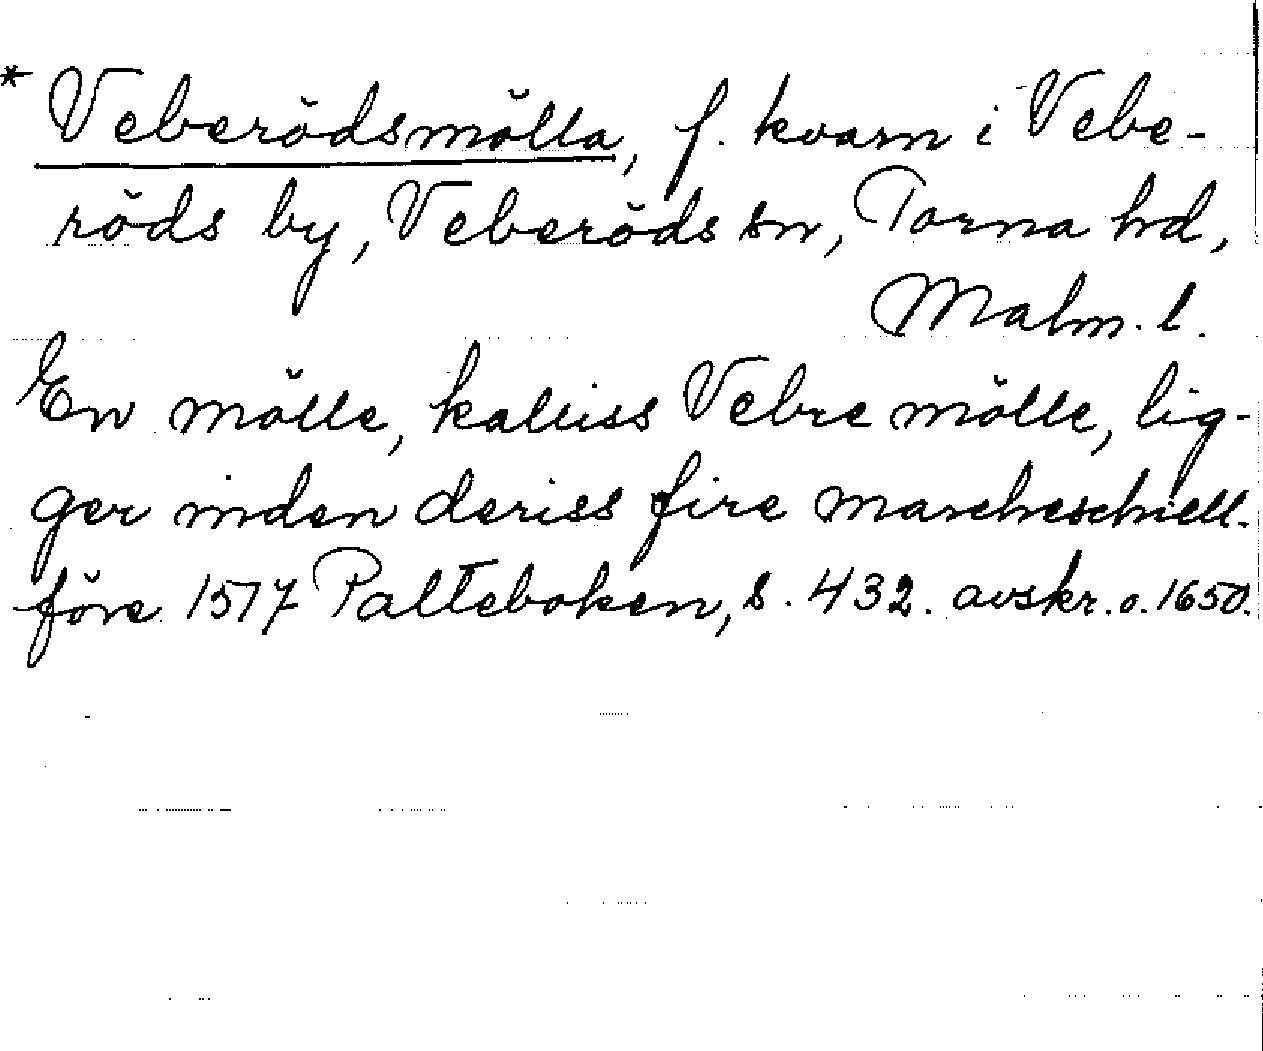 * Veberödsmölla, f. kvarn i Vebe-
röds by, Veberöds sn, Torna hd,
Malm. l.
En mölle, kalliss Vebre mölle, lig-
ger inden deriss fire marcheschiell.
före 1517 Palteboken, s. 432. avskr. o. 1650.